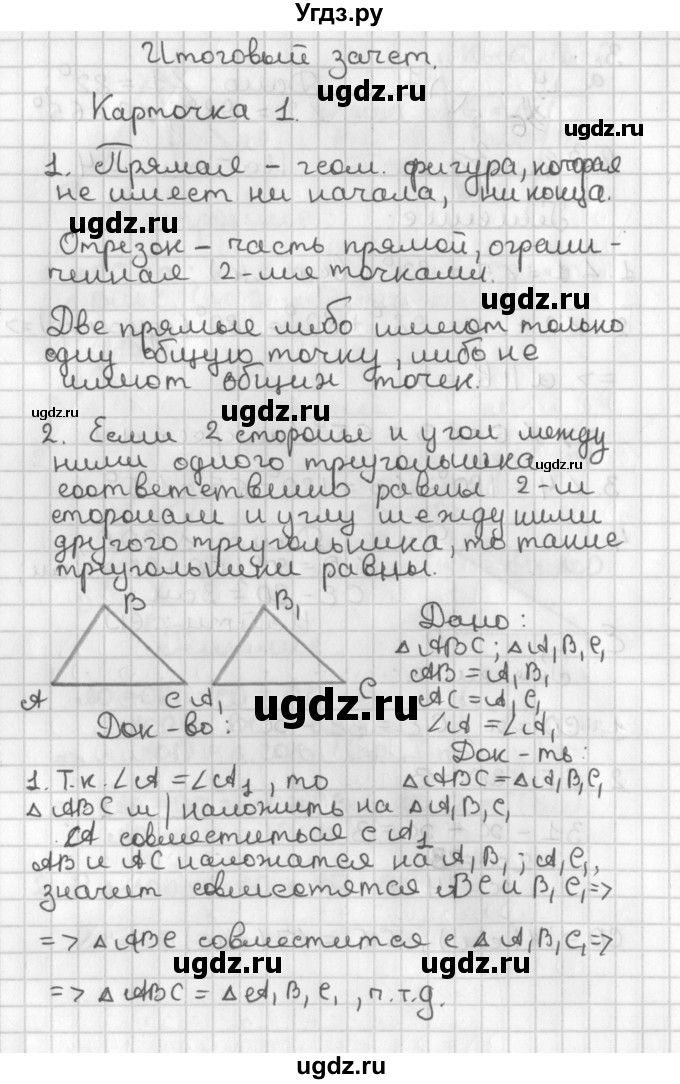 Угдз.ру
Итоговый зачет.
ugdz.ru
Карточка 1.
1. Прямая – геом. фигура, которая
не имеет ни начала, ни конца.
ugdz.ru
Отрезок – часть прямой, ограни-
ченная 2-мя точками.
ugdz.ru
Две прямые либо имеют только
одну общую точку, либо не
имеют общих точек.
ugdz.ru
ugdz.ru
2. Если 2 стороны и угол между
ними одного треугольника
ugdz.ru
соответственно равны 2-м
сторонам и углу между ними
другого треугольника, то такие
треугольники равны.
B B₁
A C A₁ C
Дано:
△ABC; △A₁B₁C₁
AB = A₁B₁
AC = A₁C₁
∠A = ∠A₁
Док-ть:
△ABC = △A₁B₁C₁
ugdz.ru
Док-во:
1. Т.к. ∠A = ∠A₁, то
△ABC м/наложить на △A₁B₁C₁
A совместиться с A₁
AB и AC наложатся на A₁B₁; A₁C₁,
значит совместятся BC и B₁C₁ =>
=> △ABC совместится с △A₁B₁C₁ =>
ugdz.ru
ugdz.ru
=> △ABC = △A₁B₁C₁, ч.т.д.
ugdz.ru